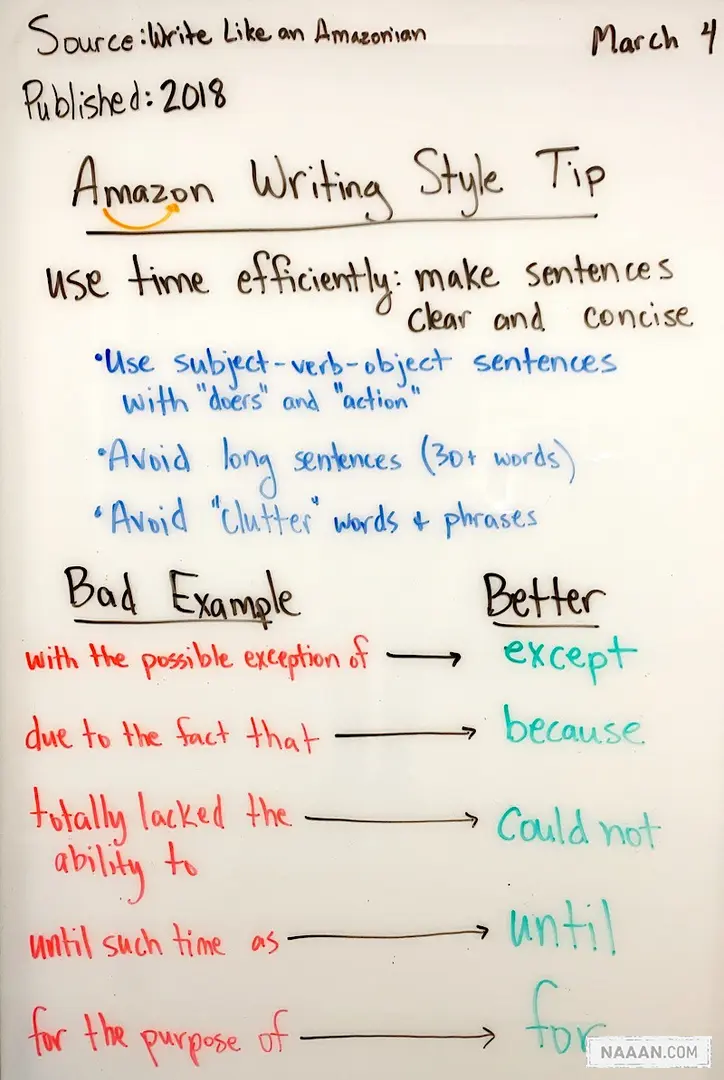 Source: Write Like an Amazonian March 4
Published: 2018
Amazon Writing Style Tip
use time efficiently: make sentences
clear and concise
•Use subject-verb-object sentences
with "doers" and "action"
•Avoid long sentences (30+ words)
•Avoid "Clutter" words + phrases
Bad Example Better
with the possible exception of → except
due to the fact that → because
totally lacked the → Could not
ability to
until such time as → until
for the purpose of → for
NAAAN.COM